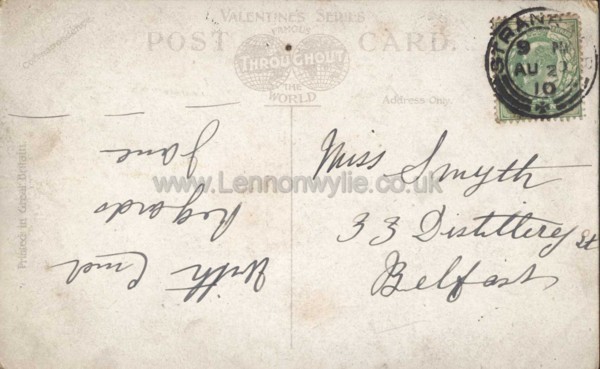 VALENTINE'S SERIES
POST CARD.
FAMOUS
THROUGHOUT
THE
WORLD
Address Only.
Printed in Great Britain.
STRAN
9
AU 2
10
Miss Smyth
33 Distillery St
Belfast
With
Regards
Jane
www.Lennonwylie.co.uk